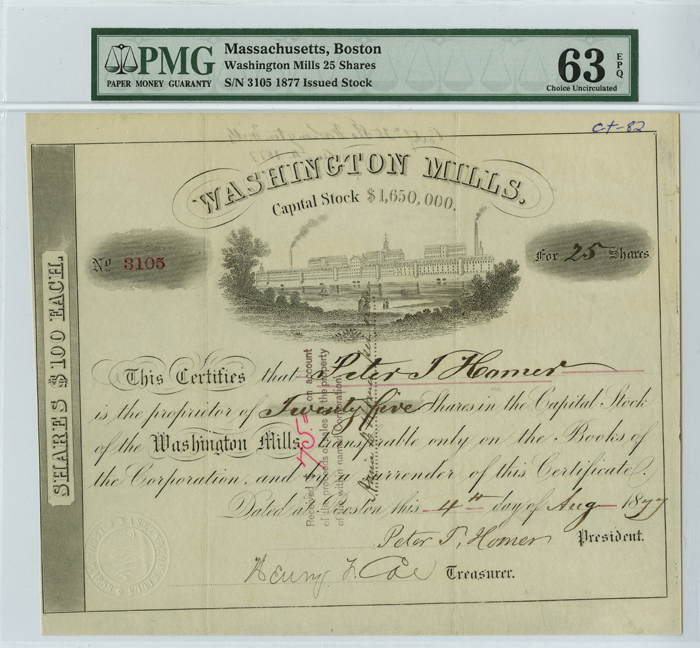 PMG
PAPER MONEY GUARANTY
Massachusetts, Boston
Washington Mills 25 Shares
S/N 3105 1877 Issued Stock
63 EPQ
Choice Uncirculated
CT-82
WASHINGTON MILLS.
Capital Stock $1,650,000.
No 3105
For 25 Shares
SHARES $100 EACH
This Certifies that Peter T Homer
is the proprietor of Twenty five Shares in the Capital Stock
of the Washington Mills, transferable only on the Books of
the Corporation, and by a surrender of this Certificate.
Dated at Boston this 4th day of Aug 1877
Peter T, Homer President.
Henry F. Coe Treasurer.
Received on account
of the proceeds of sales of the property
of the within named Corporation